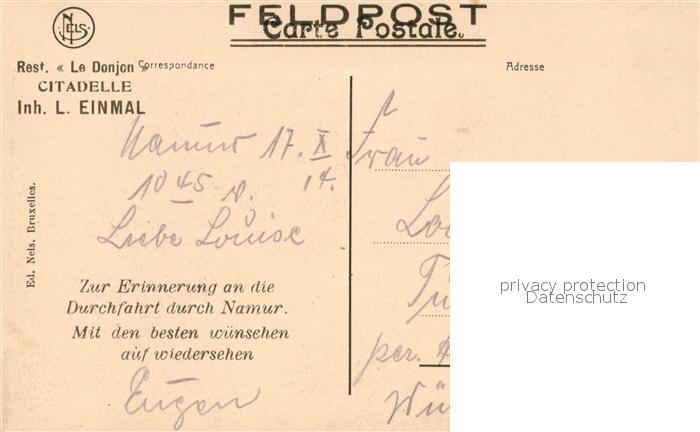 NELS
FELDPOST
Carte Postale.
Rest. « Le Donjon »
CITADELLE
Inh. L. EINMAL
Correspondance
Adresse
Namur 17. X
14.
10 45 N.
Liebe Louise
Zur Erinnerung an die
Durchfahrt durch Namur.
Mit den besten wünsehen
auf wiedersehen
Eugen
Ed. Nels, Bruxelles.
Frau
per.
privacy protection
Datenschutz